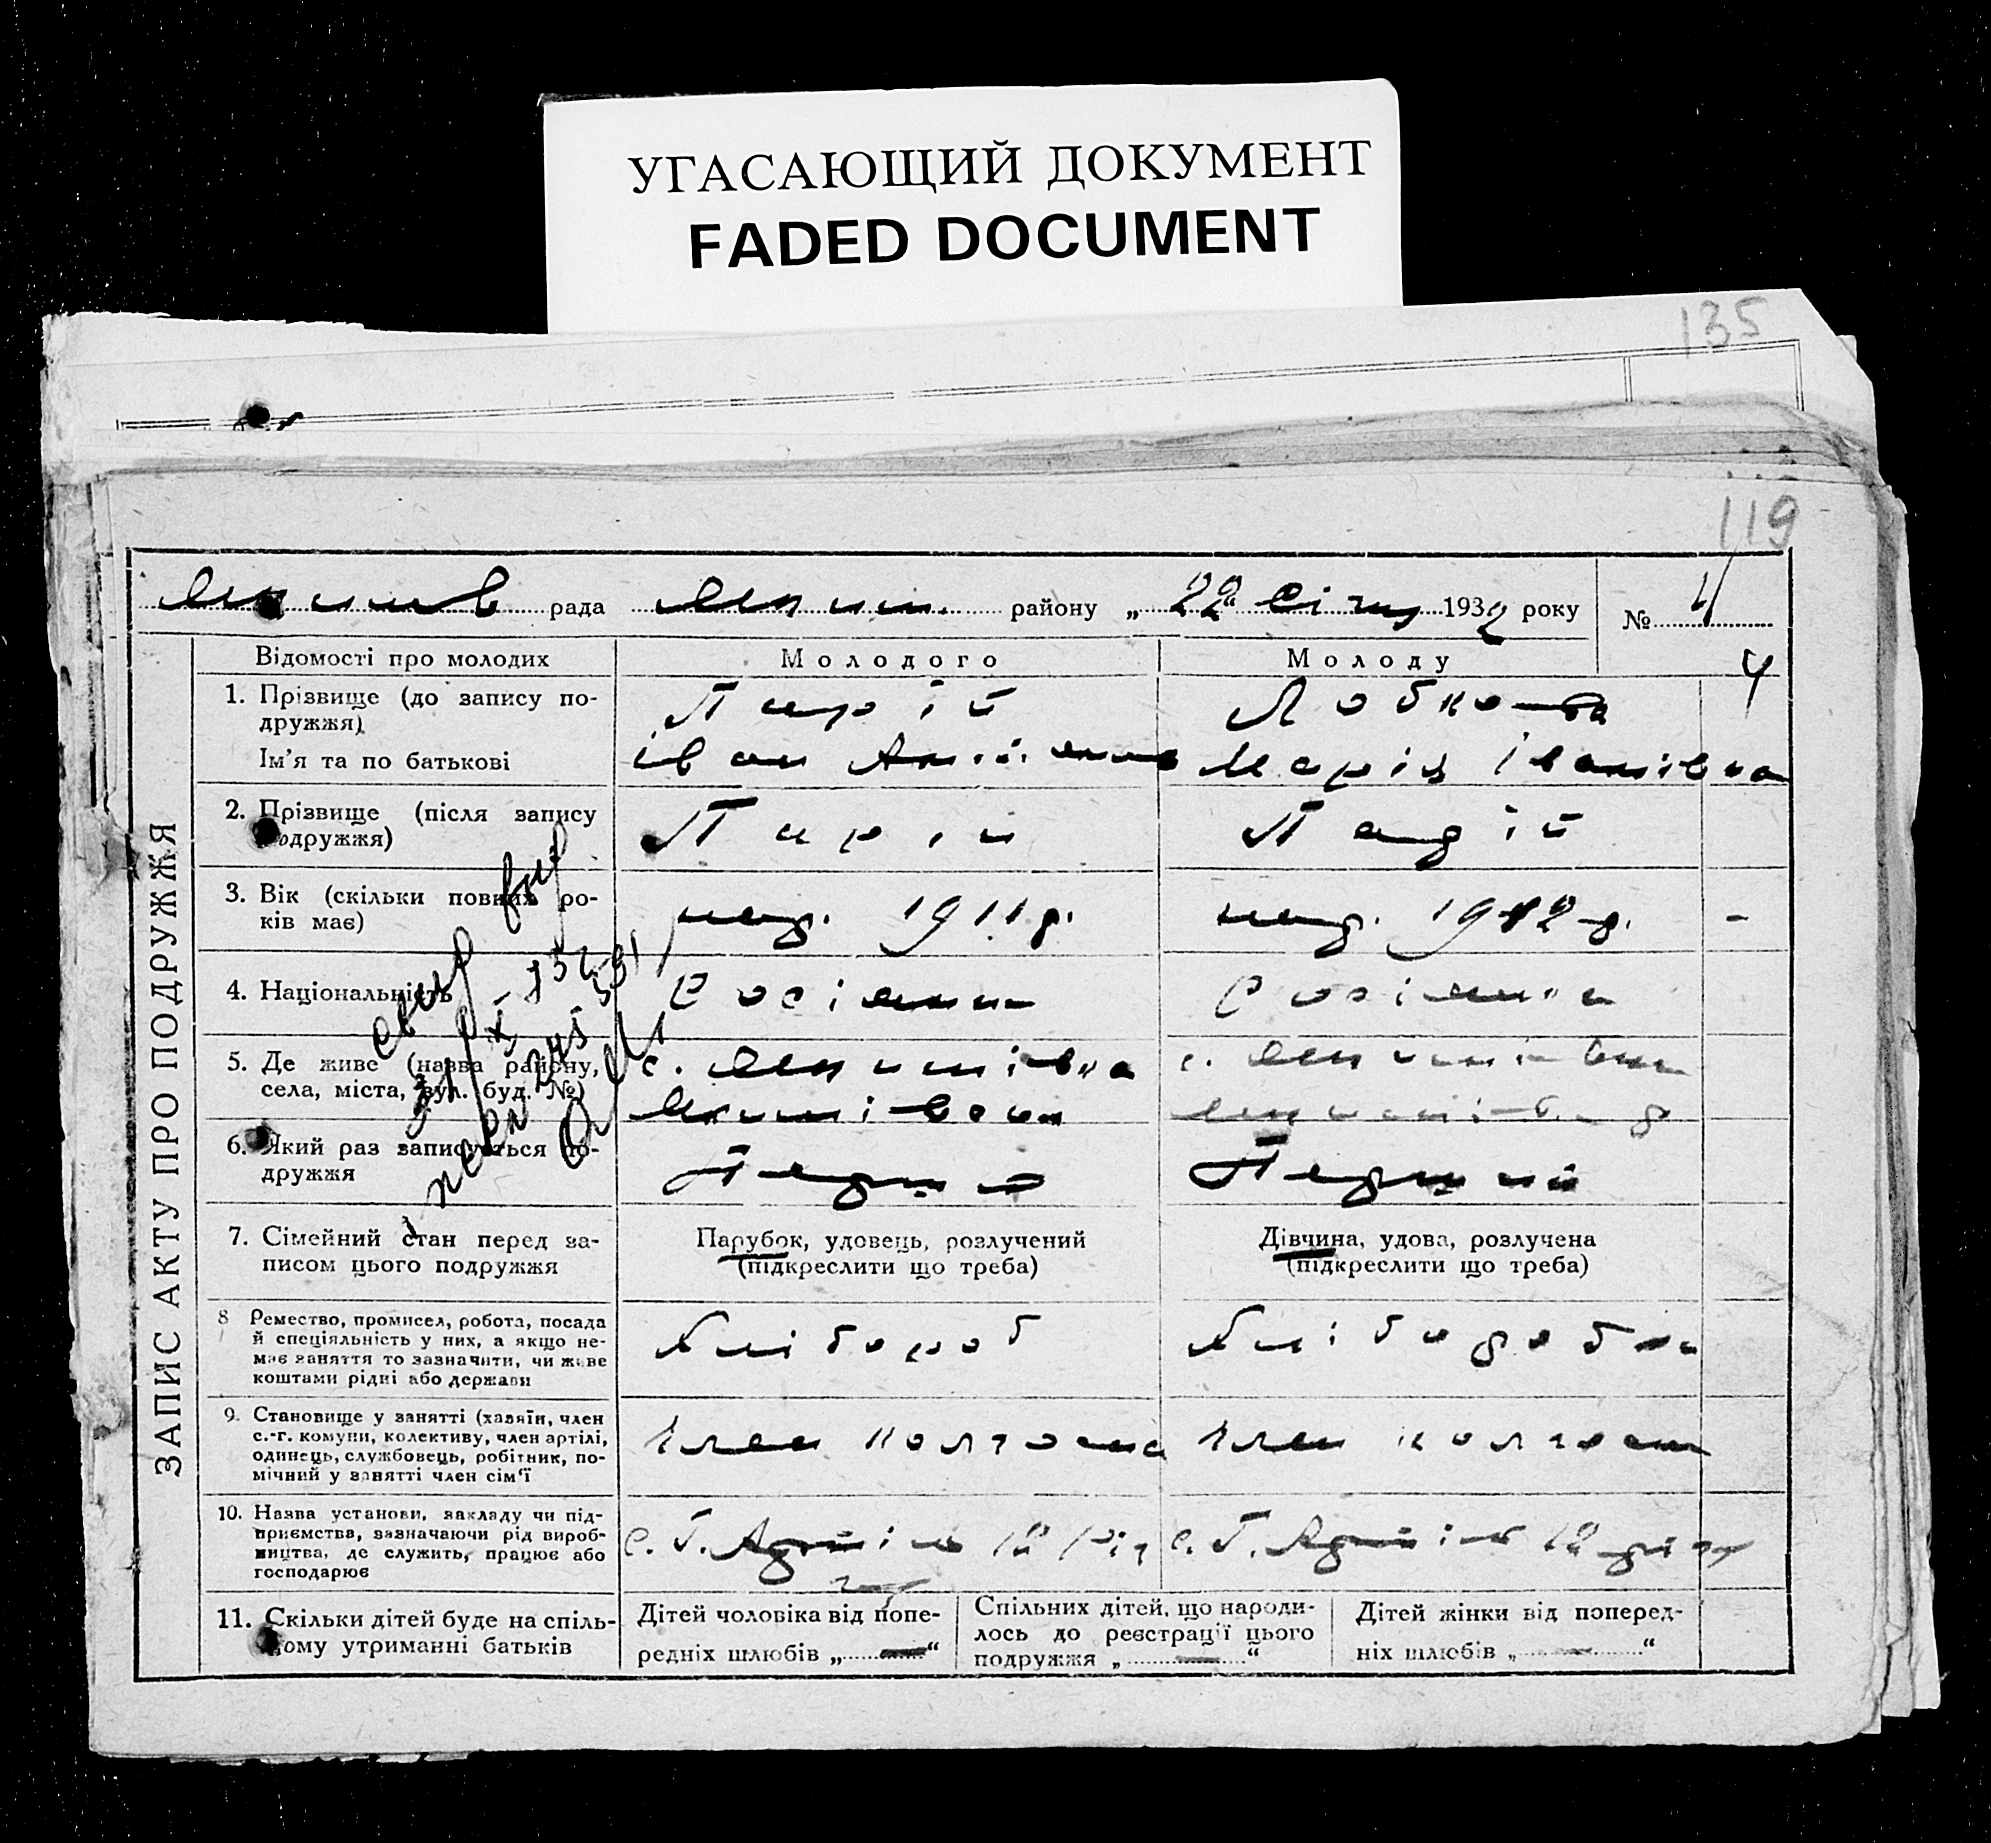 УГАСАЮЩИЙ ДОКУМЕНТ
FADED DOCUMENT
135
119
рада району „22“ Січня 1932 року № 4
4
ЗАПИС АКТУ ПРО ПОДРУЖЖЯ
Відомості про молодих Молодого Молоду
1. Прізвище (до запису по-
дружжя)
Ім'я та по батькові
Іван Марія Іванівна
2. Прізвище (після запису
подружжя)
3. Вік (скільки повних ро-
ків має)
нар. 1911 р. нар. 1912 р. -
4. Національність
Росіянин Росіянка
5. Де живе (назва району,
села, міста, вул. буд. №)
с. с.
6. Який раз записується по-
дружжя
Перший Перший
7. Сімейний стан перед за-
писом цього подружжя
Парубок, удовець, розлучений
(підкреслити що треба)
Дівчина, удова, розлучена
(підкреслити що треба)
8 Ремество, промисел, робота, посада
й спеціяльність у них, а якщо не-
має заняття то зазначити, чи живе
коштами рідні або держави
Хлібороб Хліборобка
9. Становище у занятті (хазяїн, член
с.-г. комуни, колективу, член артілі,
одинець, службовець, робітник, по-
мічний у занятті член сім'ї
Член колгоспа Член колгоспа
10. Назва установи, закладу чи під-
приємства, зазначаючи рід вироб-
ництва, де служить, працює або
господарює
С. Г. Артіль 12 С. Г. Артіль 12
11. Скільки дітей буде на спіль-
ному утриманні батьків
Дітей чоловіка від попе-
редніх шлюбів „—“
Спільних дітей, що народи-
лось до реєстрації цього
подружжя „—“
Дітей жінки від поперед-
ніх шлюбів „—“